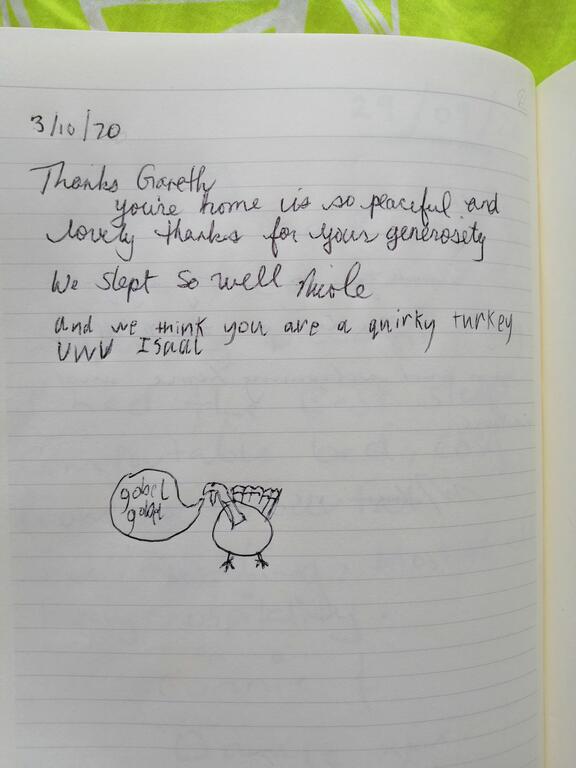 3/10/20
Thanks Gareth
you're home is so peaceful and
lovely thanks for your generosety
We slept so well Nicole
and we think you are a quirky turkey
UWU Isaac
gobel
gobel